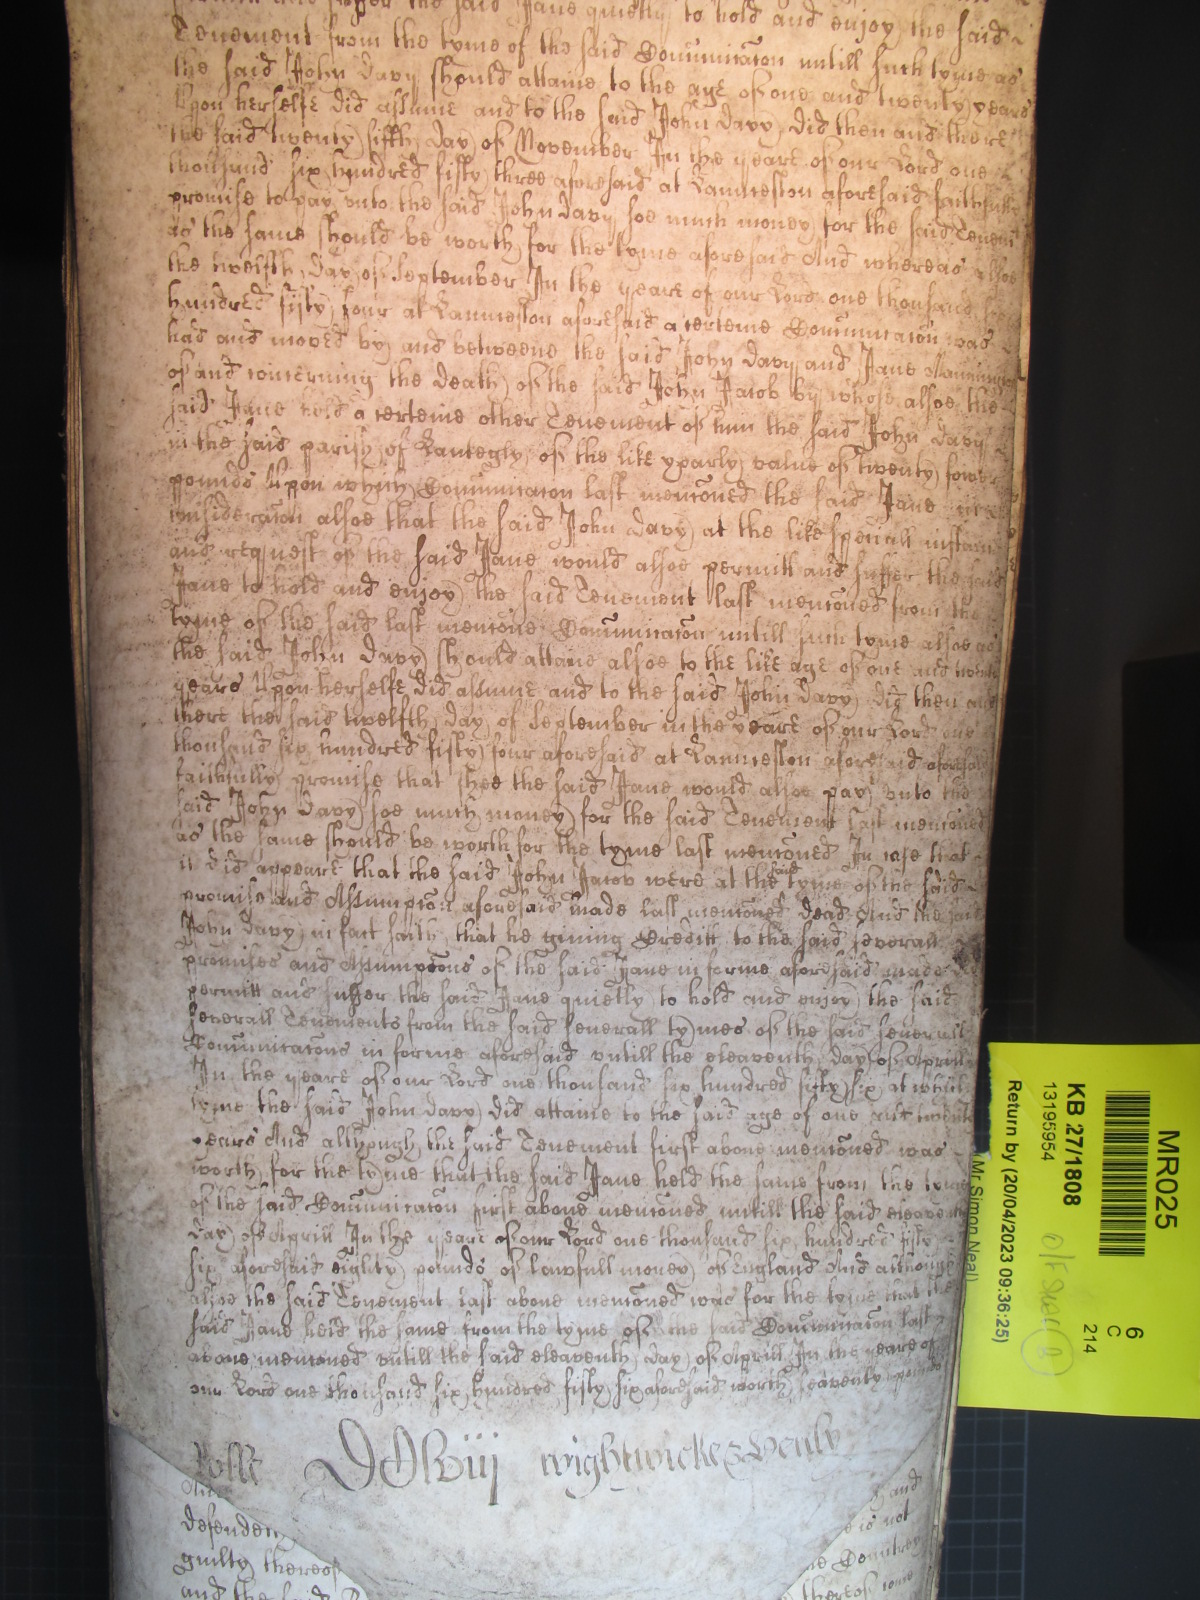 permitt and suffer the said Jane quietly to hold and enjoy the said
Tenement from the tyme of the said Comunicacon untill such tyme as
the said John Davy should attaine to the age of one and twenty yeares
Upon herselfe did assume and to the said John Davy did then and there
the said twenty fifth day of November In the yeare of our Lord one
thousand six hundred fifty three aforesaid at Lanceston aforesaid faithfully
promise to pay unto the said John Davy soe much money for the said Tenemt
as the same should be worth for the tyme aforesaid And whereas alsoe
the twelfth day of September In the yeare of our Lord one thousand six
hundred fifty four at Lanceston aforesaid a certeine Comunicacon was
had and moved by and betweene the said John Davy and Jane Manninge
of and concerning the death of the said John Jacob by whose alsoe the
said Jane held a certeine other Tenement of him the said John Davy
in the said parish of Lantegly of the like yearly value of twenty fower
pounds Upon which Comunicacon last menconed the said Jane in
consideracon alsoe that the said John Davy at the like speciall instance
and request of the said Jane would alsoe permitt and suffer the said
Jane to hold and enjoy the said Tenement last menconed from the
tyme of the said last mencone Comunicacon untill such tyme alsoe as
the said John Davy should attaine alsoe to the like age of one and twenty
yeares Upon herselfe did assume and to the said John Davy did then and
there the said twelfth day of September in the yeare of our Lord one
thousand six hundred fifty four aforesaid at Lanceston aforesaid aforesaid
faithfully promise that shee the said Jane would alsoe pay unto the
said John Davy soe much money for the said Tenement last mencioned
as the same should be worth for the tyme last menconed In case that
it did appeare that the said John Jacob were at the said tyme of the said
promise and Assumpcon aforesaid made last mencioned dead And the said
John Davy in fact saith that he giving Creditt to the said severall
promises and Assumpcons of the said Jane in forme aforesaid made did
permitt and suffer the said Jane quietly to hold and enjoy the said
severall Tenements from the said severall tymes of the said severall
Comunicacons in forme aforesaid untill the eleaventh day of Aprill
In the yeare of our Lord one thousand six hundred fifty six at which
tyme the said John Davy did attaine to the said age of one and twenty
yeares And although the said Tenement first above menconed was
worth for the tyme that the said Jane held the same from the tyme
of the said Comunicacon first above menconed untill the said eleaventh
day of Aprill In the yeare of our Lord one thousand six hundred fifty
six aforesaid eighty pounds of lawfull money of England And although
alsoe the said Tenement last above menconed was for the tyme that the
said Jane held the same from the tyme of the said Comunicacon last
above menconed untill the said eleaventh day of Aprill In the yeare of
our Lord one thousand six hundred fifty six aforesaid worth seaventy pounds
Rolle wightwicke &
And and
defendent is not
guilty thereof the Countrey
and the said thereof come
MR025
6
C
214
KB 27/1808
13195954
Return by (20/04/2023 09:36:25)
(Mr Simon Neal)